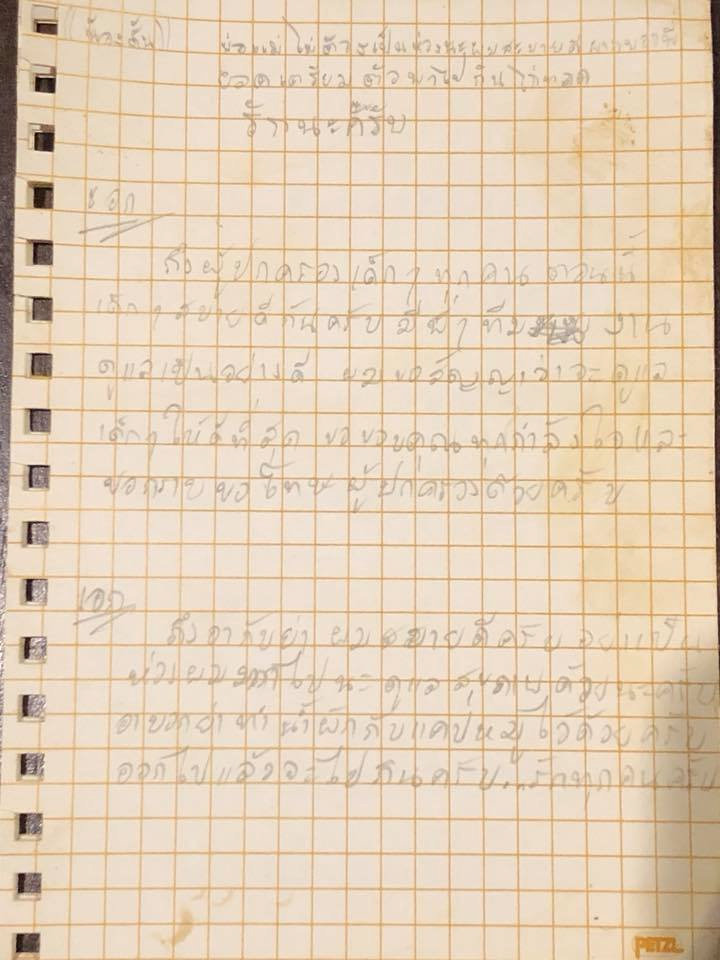 (น้องตั้น) พ่อแม่ ไม่ต้องเป็นห่วงนะ ผมสบายดี บอกพี่
ยอดเตรียมตัวพาไปกินไก่ทอด
รักนะครับ
จากโค้ชเอก
ถึงผู้ปกครองเด็กๆ ทุกคน ตอนนี้
เด็กๆ สบายดีกันครับ มีพี่ๆ ทีม งาน
ดูแลเป็นอย่างดี ผมขอสัญญาว่าจะดูแล
เด็กๆ ให้ดีที่สุด ขอขอบคุณทุกกำลังใจ และ
ขอกราบขอโทษผู้ปกครองด้วยครับ
เอก
ถึงอากับย่า ผมสบายดีครับ อย่าเป็น
ห่วงผมมากไปนะ ดูแลสุขภาพด้วยนะครับ
อาบอกย่าทำน้ำผักกับแคปหมูไว้ด้วยครับ
ออกไปแล้วจะไปกินครับ...รักทุกคนครับ
PETZL